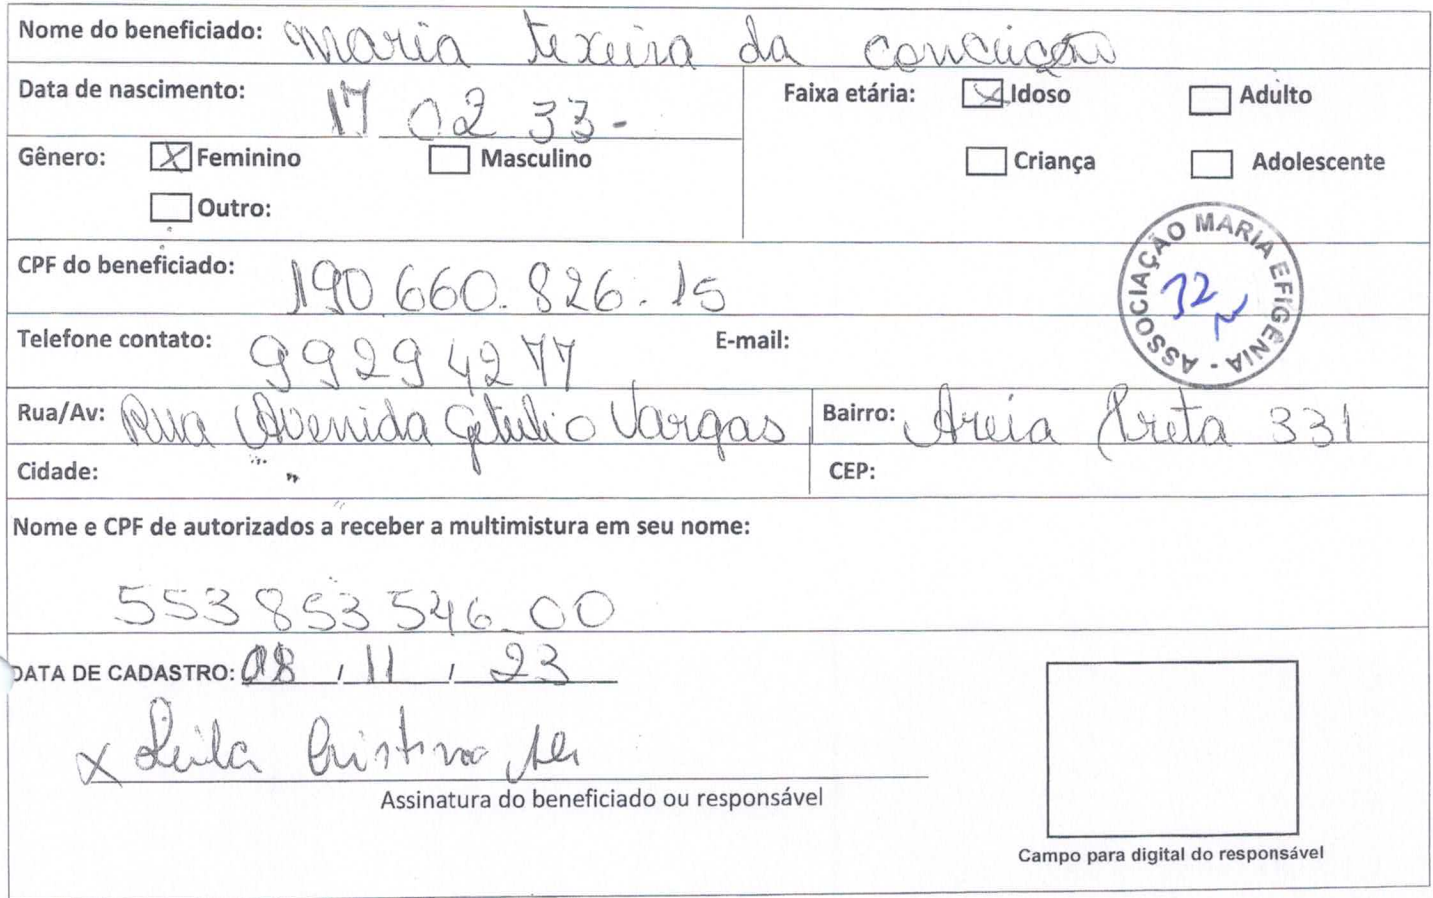 Nome do beneficiado: Maria texeira da conceição
Data de nascimento: 17 02 33-
Faixa etária: Idoso Adulto
Gênero: Feminino Masculino
Criança Adolescente
Outro:
ASSOCIAÇÃO MARIA EFIGÊNIA -
32
CPF do beneficiado: 190 660. 826. 15
Telefone contato: 99294277 E-mail:
Rua/Av: Rua Avenida Getulio Vargas Bairro: Areia Preta 331
Cidade: CEP:
Nome e CPF de autorizados a receber a multimistura em seu nome:
553 853 546_00
DATA DE CADASTRO: 08 / 11 / 23
x Leila Cristina
Assinatura do beneficiado ou responsável
Campo para digital do responsável